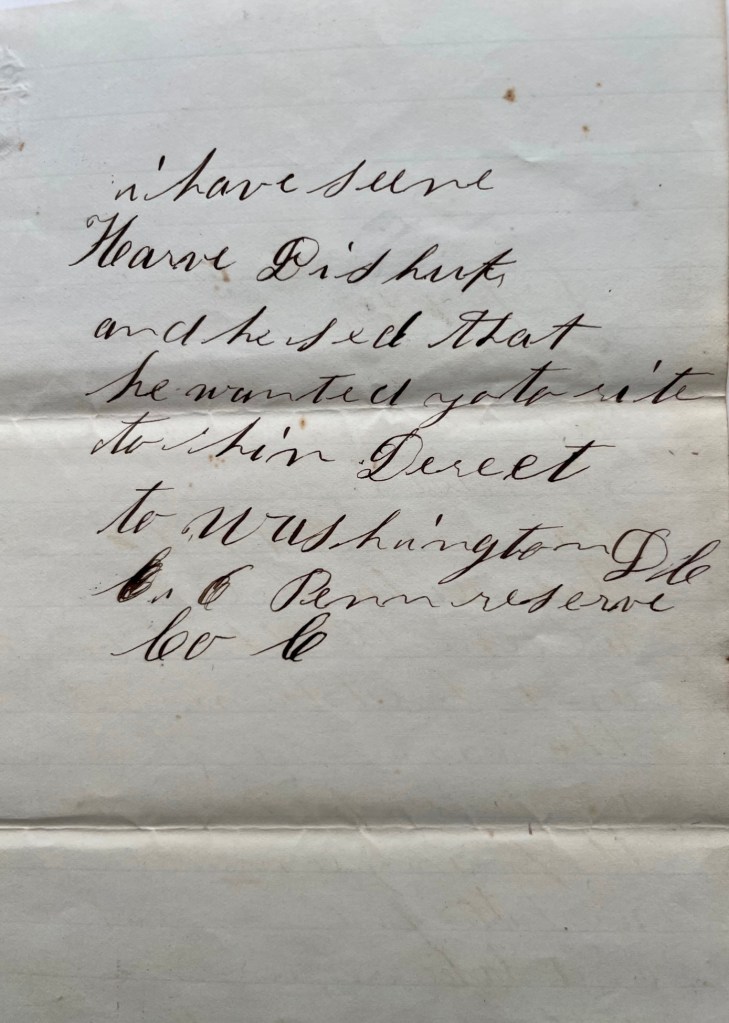 i have seene
Harve Dishuk
and he sed that
he wanted yo to rite
to hin Dereet
to Washington D C
6 Penn reserve
Co C